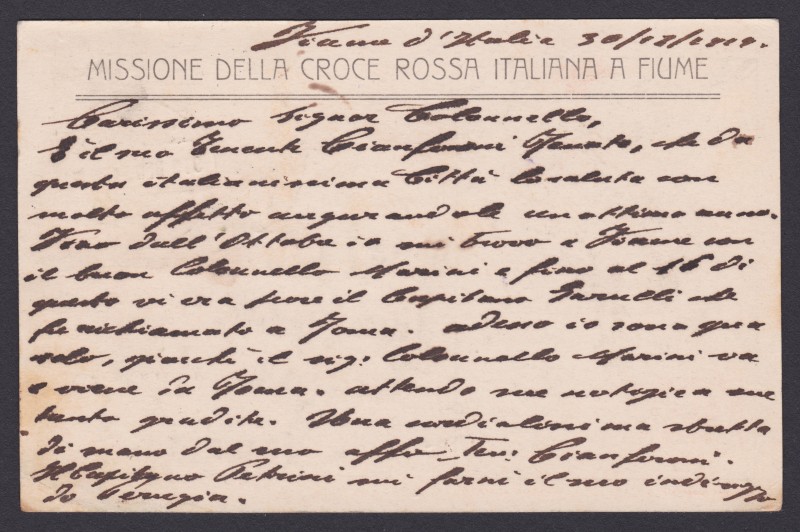 Fiume d'Italia 30/12/1919.
MISSIONE DELLA CROCE ROSSA ITALIANA A FIUME
Carissimo Signor Colonnello,
È il suo Tenente Cianferoni Renato, che da
questa italianissima Città lo saluta con
molto affetto augurandole un ottimo anno.
dall'Ottobre io mi trovo a Fiume con
il buon Colonnello Marini e fino al 16 di
questo vi era pure il Capitano che
fu richiamato a Roma. adesso io sono qua
solo, giacché il sig. Colonnello Marini va
e viene da Roma. attendo sue notizie a me
tanto gradite. Una cordialissima stretta
di mano dal suo affo Ten. Cianferoni.
Il Capitano Petrini mi fornì il suo indirizzo
da Perugia.